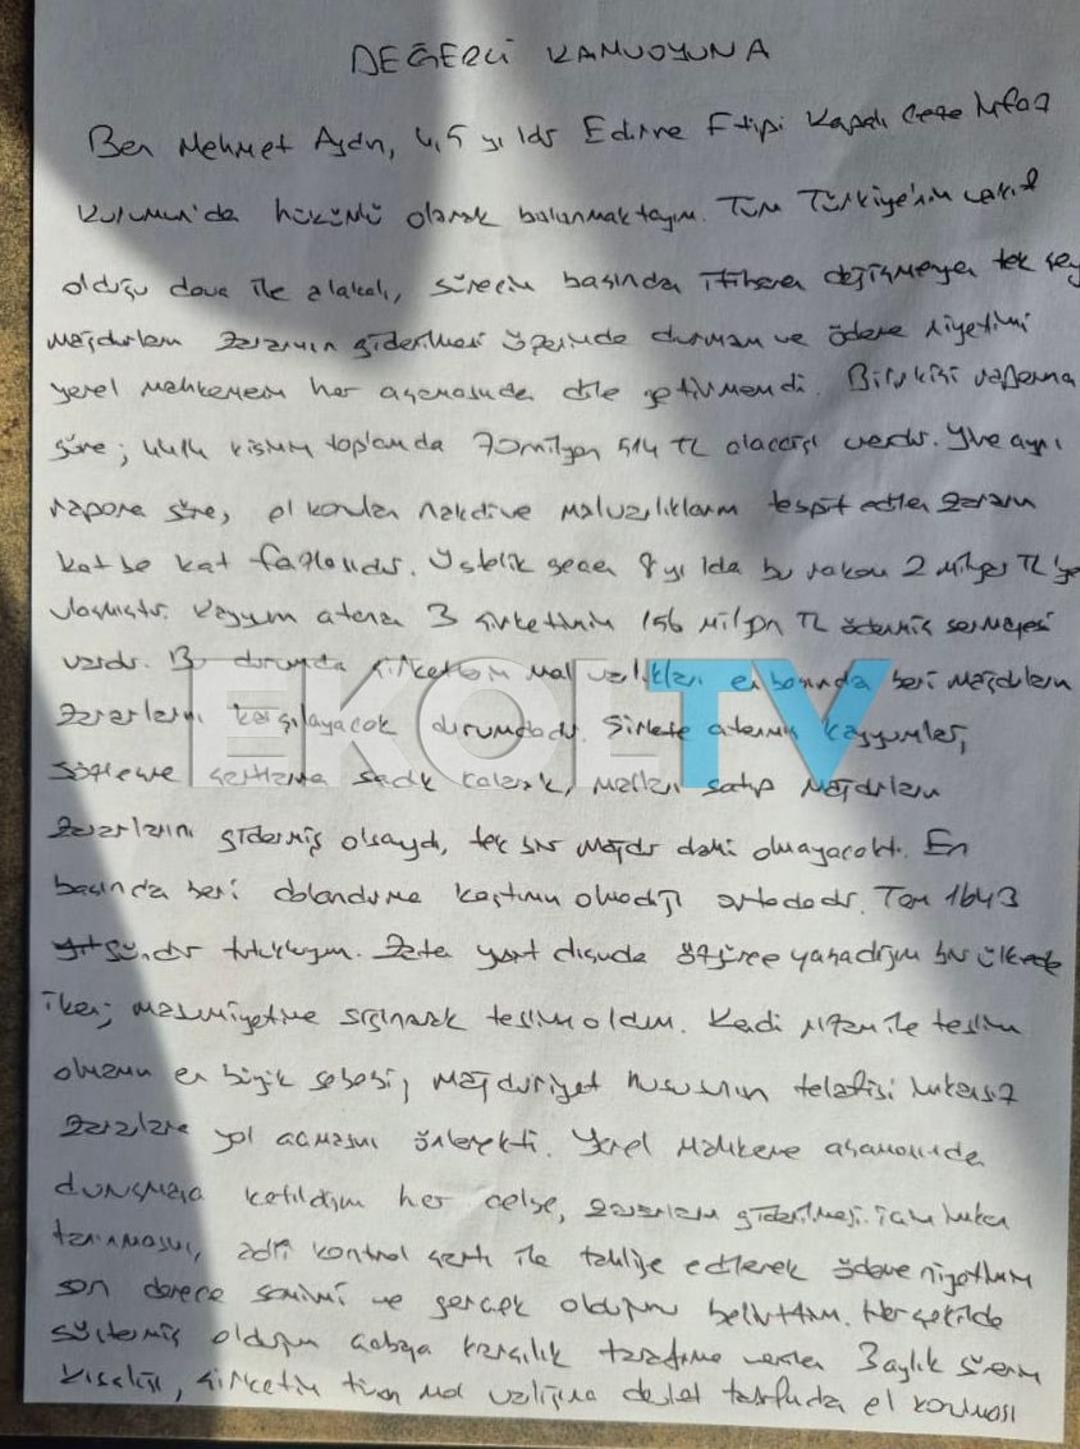 DEĞERLİ KAMUOYUNA
Ben Mehmet Aydın, 4,5 yıldır Edirne F tipi Kapalı Ceza İnfaz
Kurumun'da hükümlü olarak bulunmaktayım. Tüm Türkiye'nin vakıf
olduğu dava ile alakalı, sürecin başından itibaren değişmeyen tek şey
mağdurların zararının giderilmesi üzerinde durmam ve ödeme niyetimi
yerel mahkemenin her aşamasında dile getirmemdi. Bilirkişi raporuna
göre; kişinin toplamda 70 milyon 514 TL alacağı vardır. Yine aynı
rapora göre, el konulan nakdi ve malvarlıklarım tespit edilen zararın
kat be kat fazlasıdır. Üstelik geçen 8 yılda bu rakam 2 Milyar TL'ye
ulaşmıştır. Kayyum atanan 3 şirketimin 156 Milyon TL ödenmiş sermayesi
vardır. Bu durumda şirketlerin mal varlıkları en başında beri mağdurların
zararlarını karşılayacak durumdadır. Şirkete atanmış kayyumlar,
sözleşme şartlarına sadık kalarak, malları satıp mağdurların
zararlarını gidermiş olsaydı, tek bir mağdur dahi olmayacaktı. En
başında beri dolandırma kastımın olmadığı ortadadır. Tam 1643
gündür tutukluyum. Zaten yurt dışında özgürce yaşadığım bir ülkede
iken; masumiyetime sığınarak teslim oldum. Kendi rızam ile teslim
olmamın en büyük sebebi, mağduriyet hususunun telafisi imkansız
zararlara yol açmasını önlemekti. Yerel mahkeme aşamasında
duruşmaya katıldığım her celse, zararların giderilmesi için imkan
tanınmasını, adli kontrol şartı ile tahliye edilerek ödeme niyetimin
son derece samimi ve gerçek olduğunu belirttim. Her şekilde
göstermiş olduğum çabaya karşılık tarafıma verilen 3 aylık sürenin
kısalığı, şirketin tüm mal varlığına devlet tarafında el konulması
EKOLTV